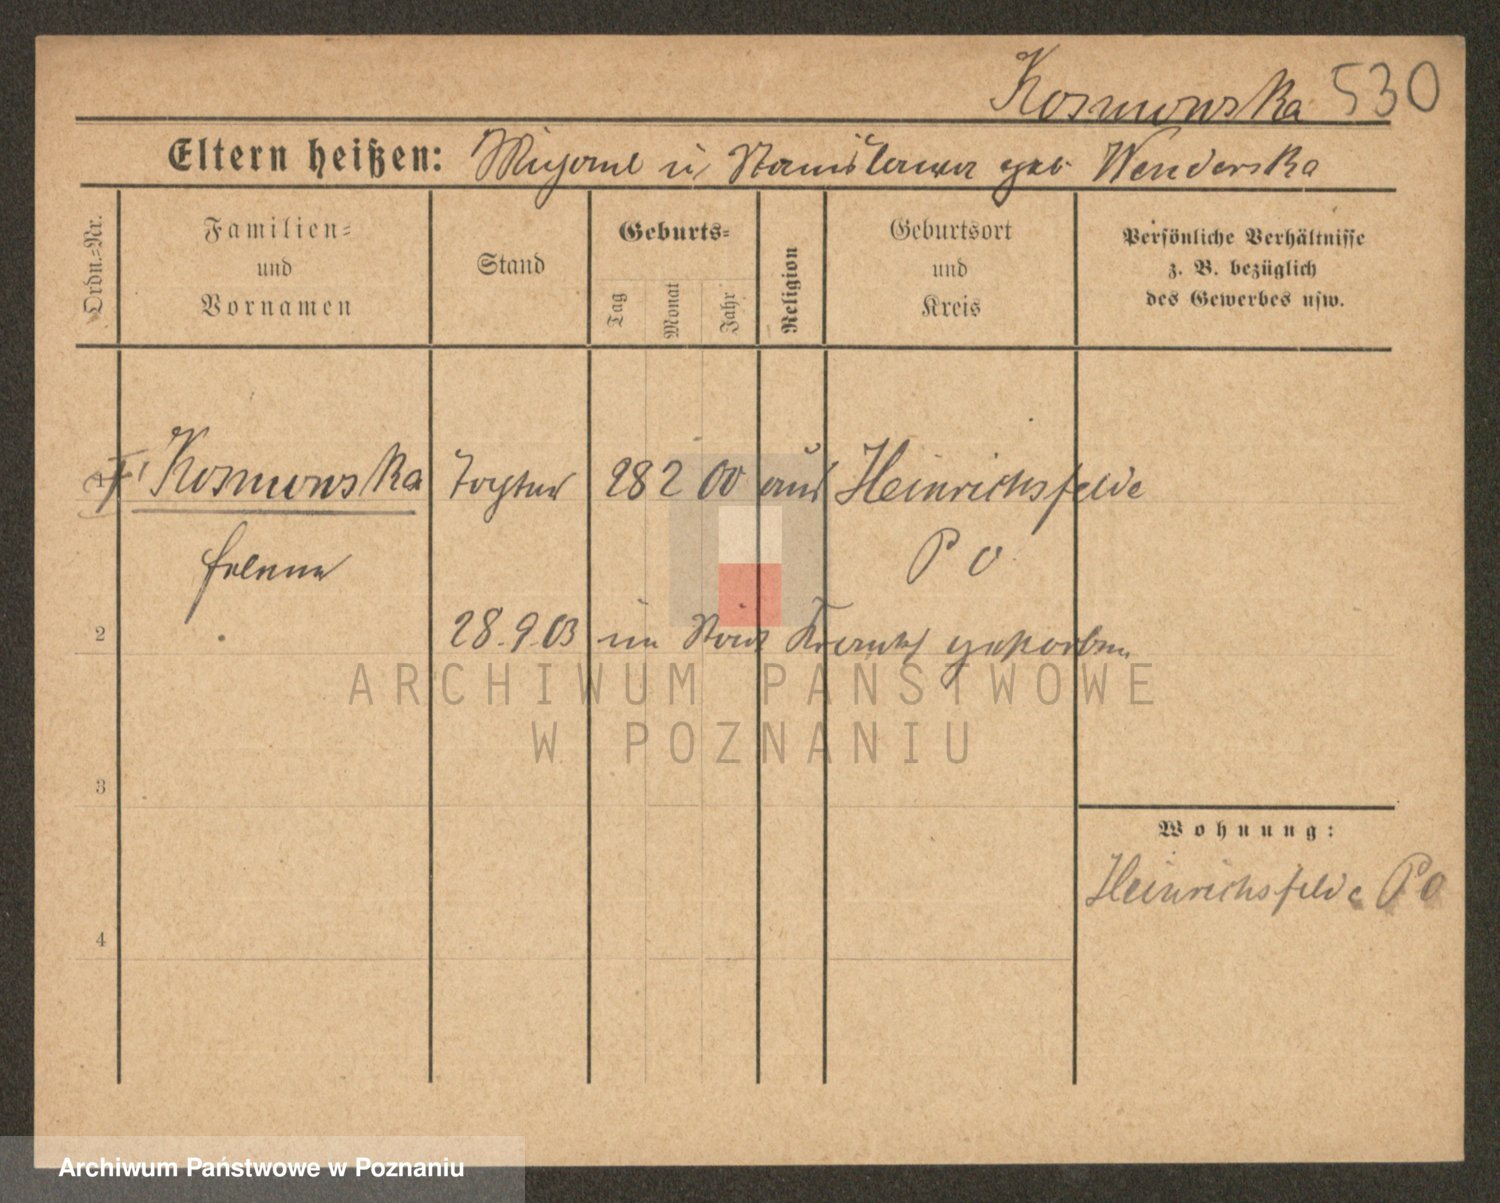 Kosmowska 530
Eltern heißen: Michael u. Stanislawa geb. Wenderska
Ordn.-Nr.
Familien-
und
Vornamen
Stand
Geburts-
Tag
Monat
Jahr
Religion
Geburtsort
und
Kreis
Persönliche Verhältnisse
z. B. bezüglich
des Gewerbes usw.
Kosmowska Tochter 28 2 00 Heinrichsfelde
Helene P O
2 28.9.03 im Stadt Krankh gestorben
ARCHIWUM PAŃSTWOWE
W POZNANIU
3
Wohnung:
Heinrichsfelde P O
4
Archiwum Państwowe w Poznaniu